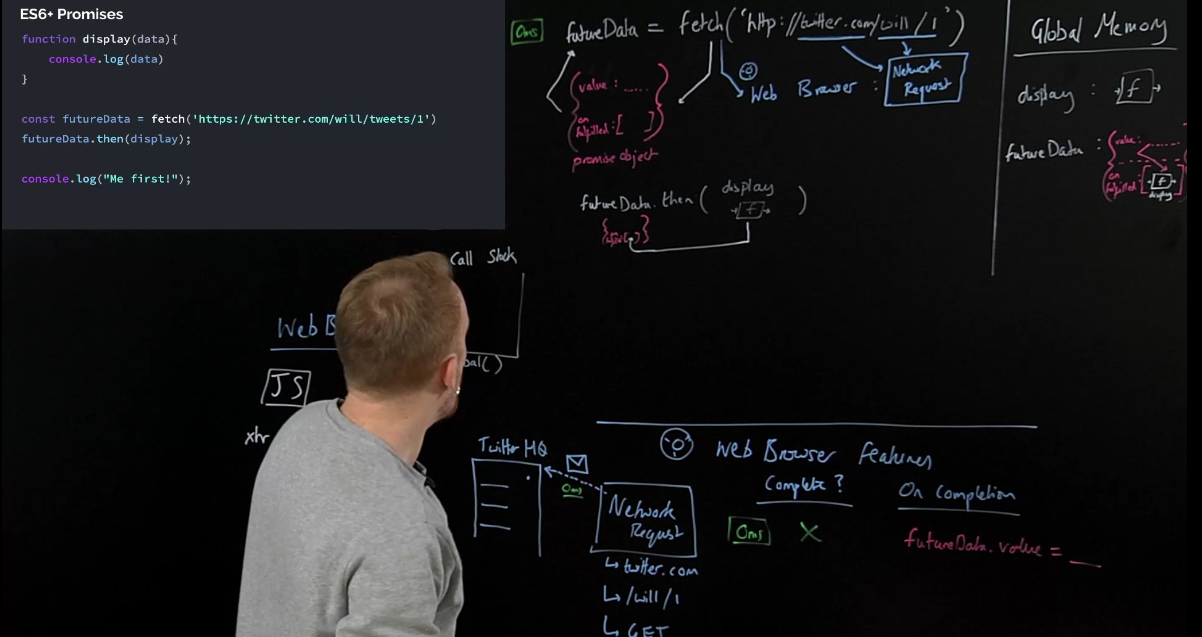 ES6+ Promises
function display(data){
console.log(data)
}
const futureData = fetch('https://twitter.com/will/tweets/1')
futureData.then(display);
console.log("Me first!");
0ms futureData = fetch('http://twitter.com/will/1')
{value: .....
on fulfilled:[ ]}
promise object
Web Browser : Network Request
futureData.then( display
f )
Global Memory
display : f
futureData : {value:
on fulfilled: [ f ]
display
Call Stack
Web B
JS
xhr
Twitter HQ
0ms
Network Request
↳ twitter.com
↳ /will/1
↳ GET
Web Browser Features
Complete?
On Completion
0ms X
futureData.value = __